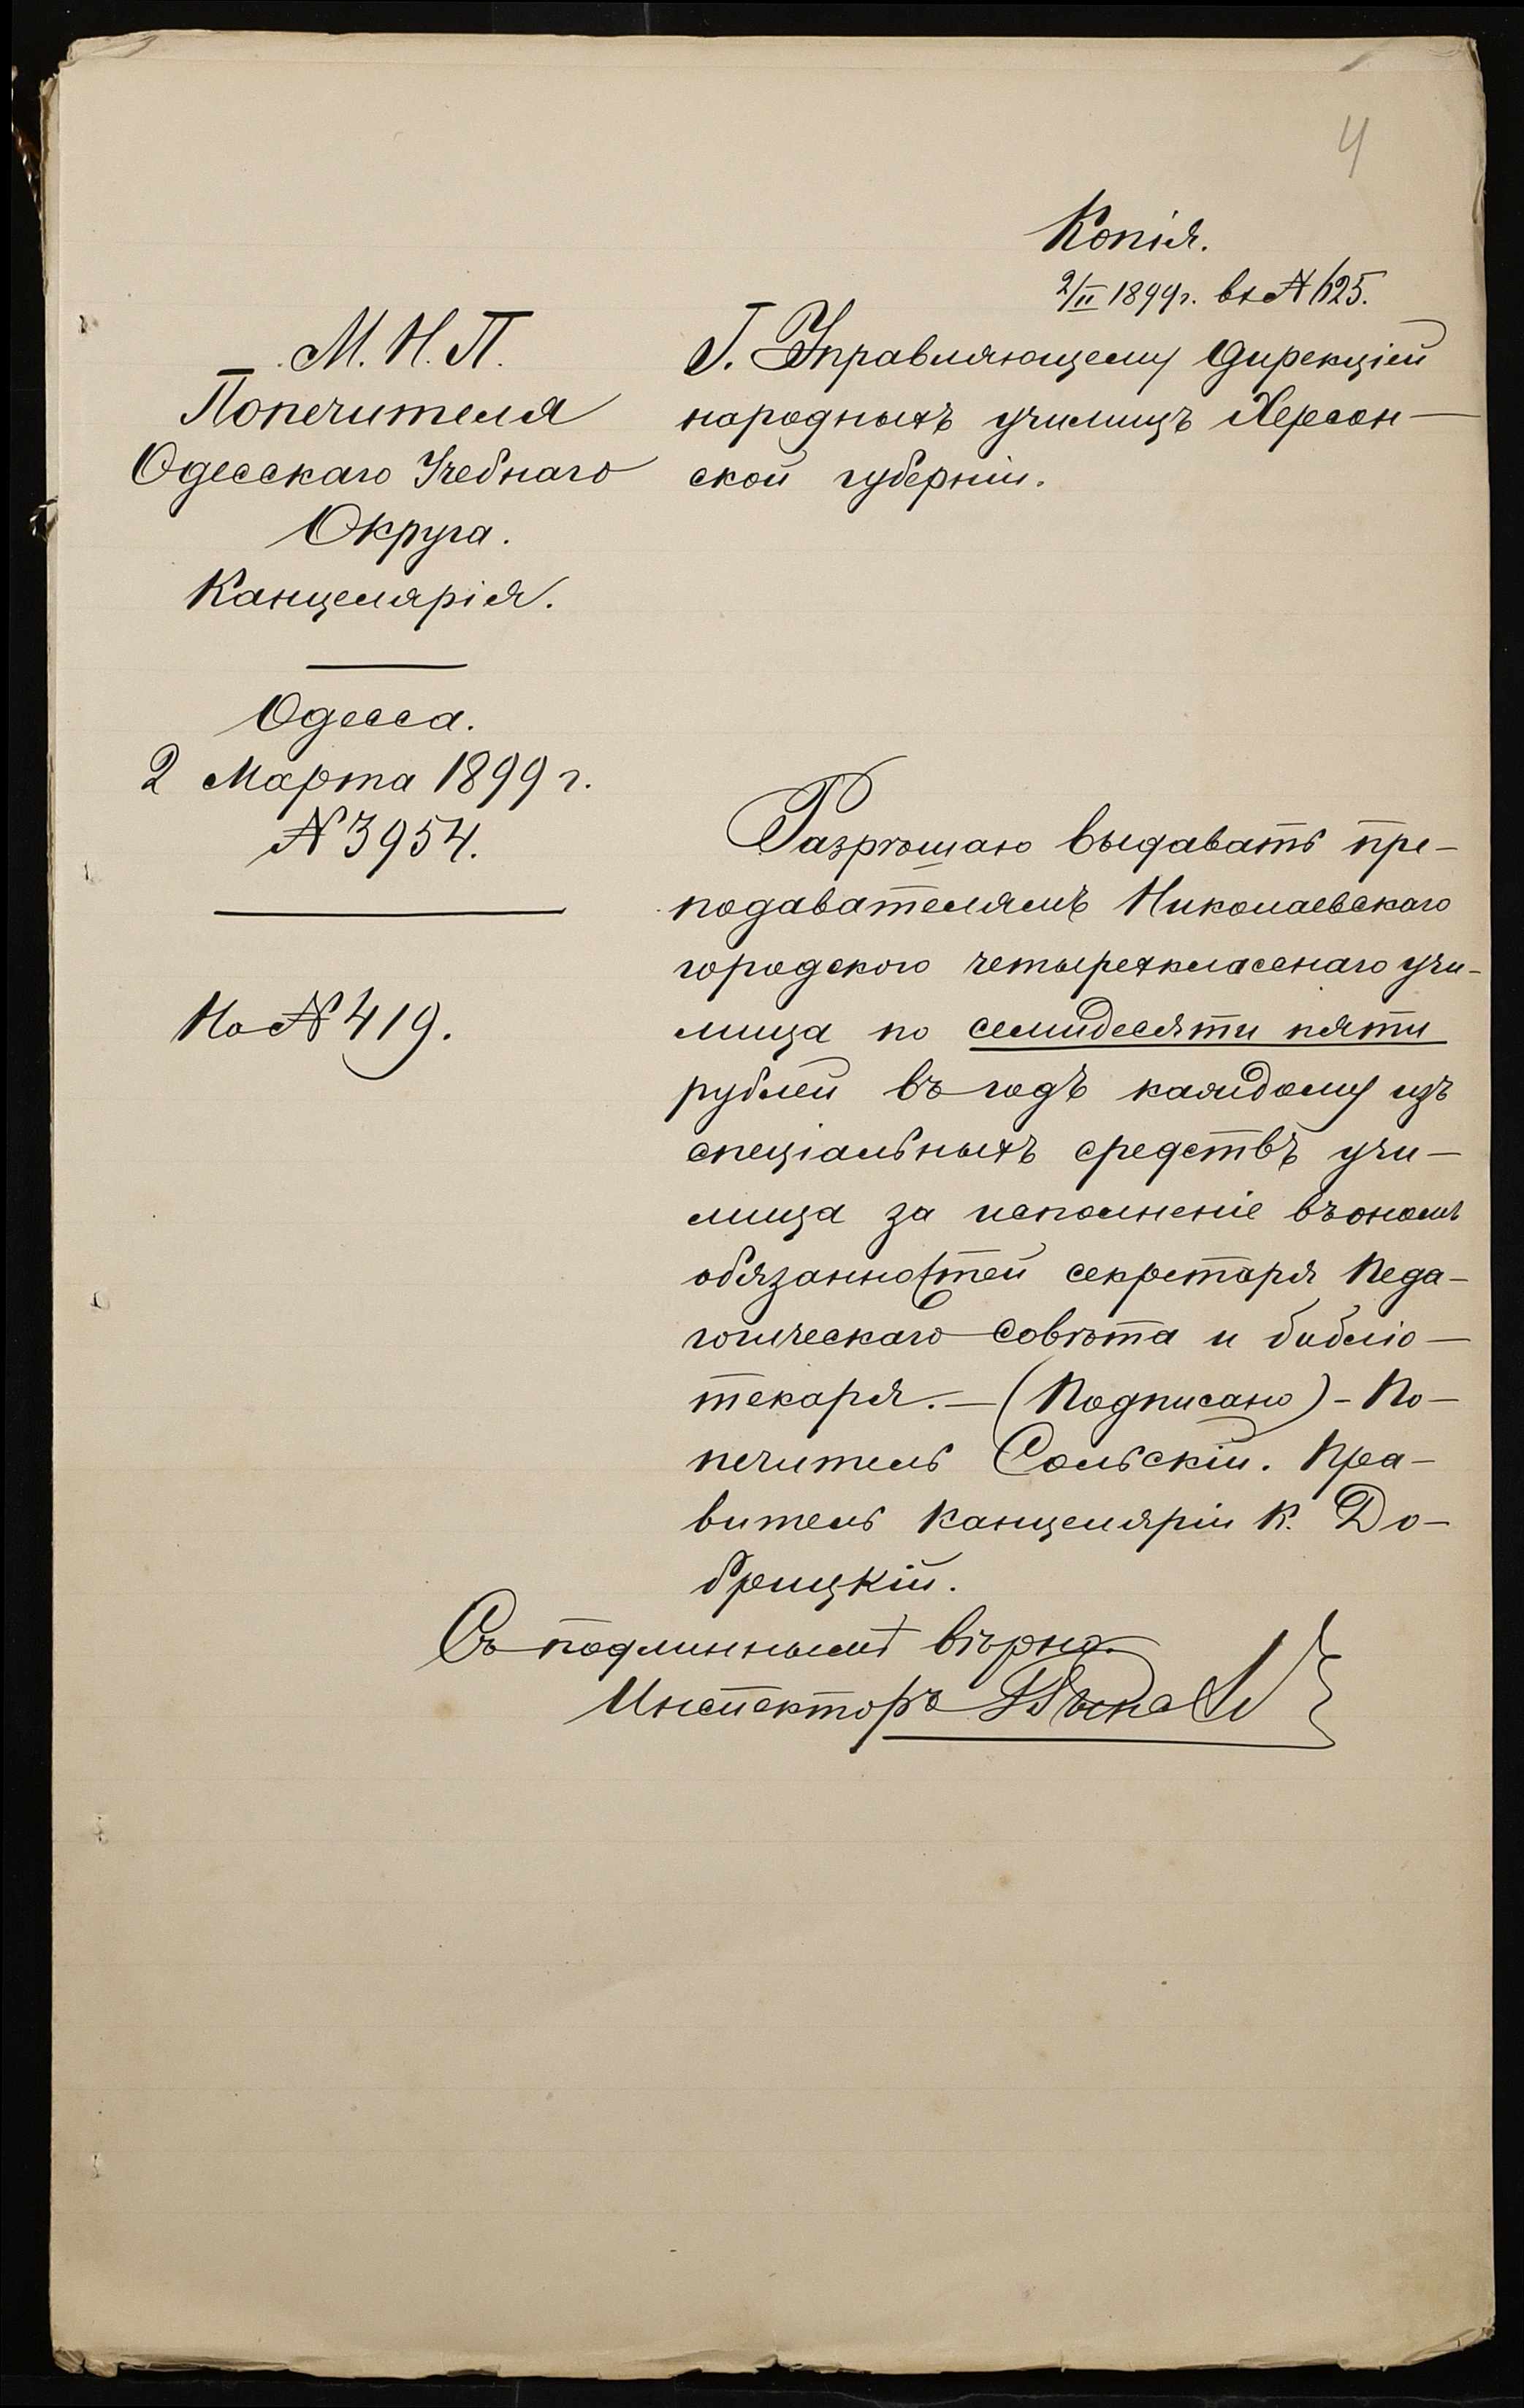 4
Копія.
2/II 1899 г. вх № 625.
М. Н. П.
Попечителя
Одесскаго Учебнаго
Округа.
Канцелярія.
Одесса.
2 Марта 1899 г.
№ 3954.
На № 419.
Г. Управляющему Дирекціей
народныхъ училищъ Херсон-
ской губерніи.
Разрѣшаю выдавать пре-
подавателямъ Николаевскаго
городского четырехкласснаго учи-
лища по семидесяти пяти
рублей въ годъ каждому изъ
спеціальныхъ средствъ учи-
лища за исполненіе въ ономъ
обязанностей секретаря Педа-
гогическаго Совѣта и библіо-
текаря. - (Подписано) - По-
печитель Сольскій. Пра-
витель Канцеляріи К. До-
брицкій.
Съ подлиннымъ вѣрно.
Инспекторъ